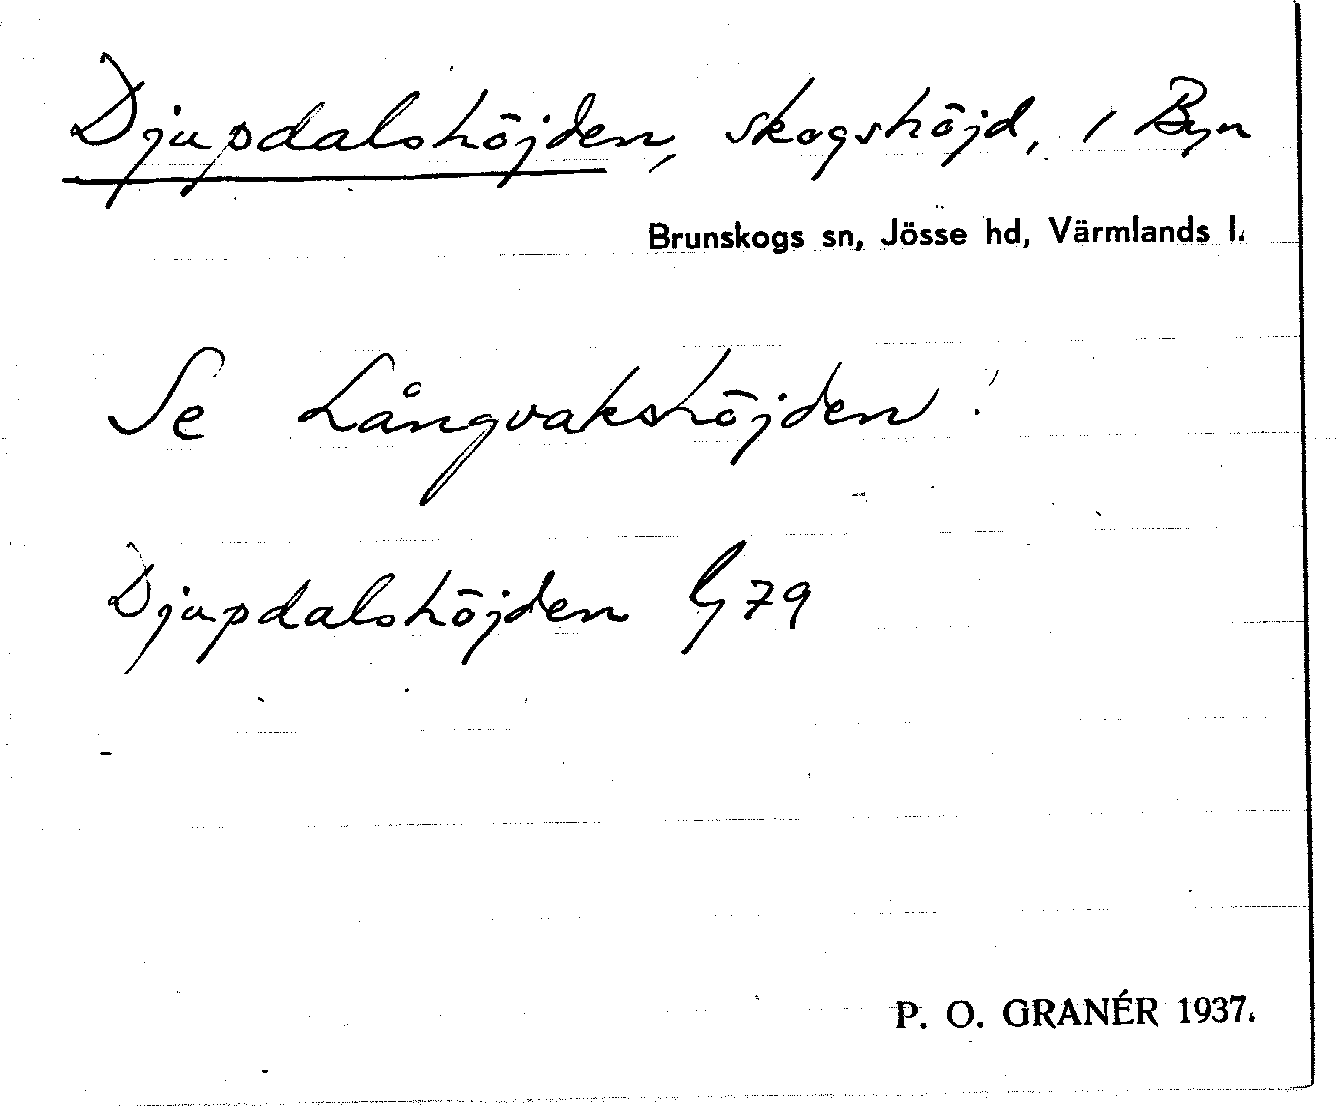 Djupdalshöjden, skogshöjd, 1 Byn
Brunskogs sn, Jösse hd, Värmlands l.
Se Långvakshöjden!
Djupdalshöjden 79
P. O. GRANÉR 1937.